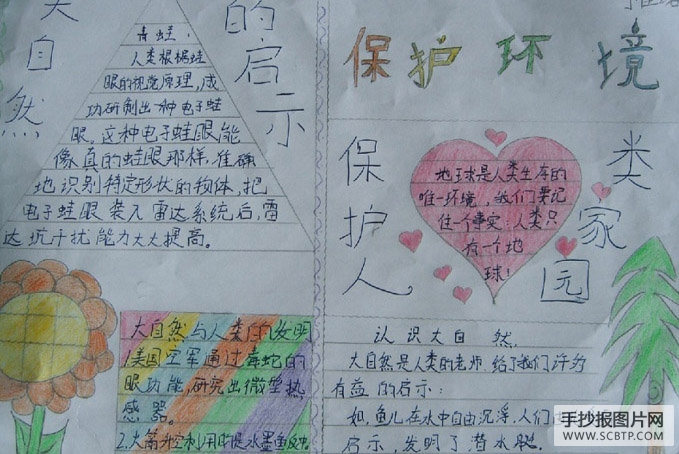 大自然
的启示
青蛙:
人类根据蛙
眼的视觉原理,成
功研制出一种电子蛙
眼。这种电子蛙眼能
像真的蛙眼那样,准确
地识别特定形状的物体,把
电子蛙眼装入雷达系统后,雷
达抗干扰能力大大提高。
大自然与人类的发明
1.美国空军通过毒蛇的
眼功能,研究出微型热
感器。
2.火箭升空利用的是水墨鱼反冲
保护环境
保护人
类家园
地球是人类生存的
唯一环境,我们要记
住一个事实:人类只
有一个地
球!
认识大自然
大自然是人类的老师.给了我们许多
有益的启示:
如,鱼儿在水中自由沉浮,人们
启示,发明了潜水艇。
手抄报图片网
WWW.SCBTP.COM